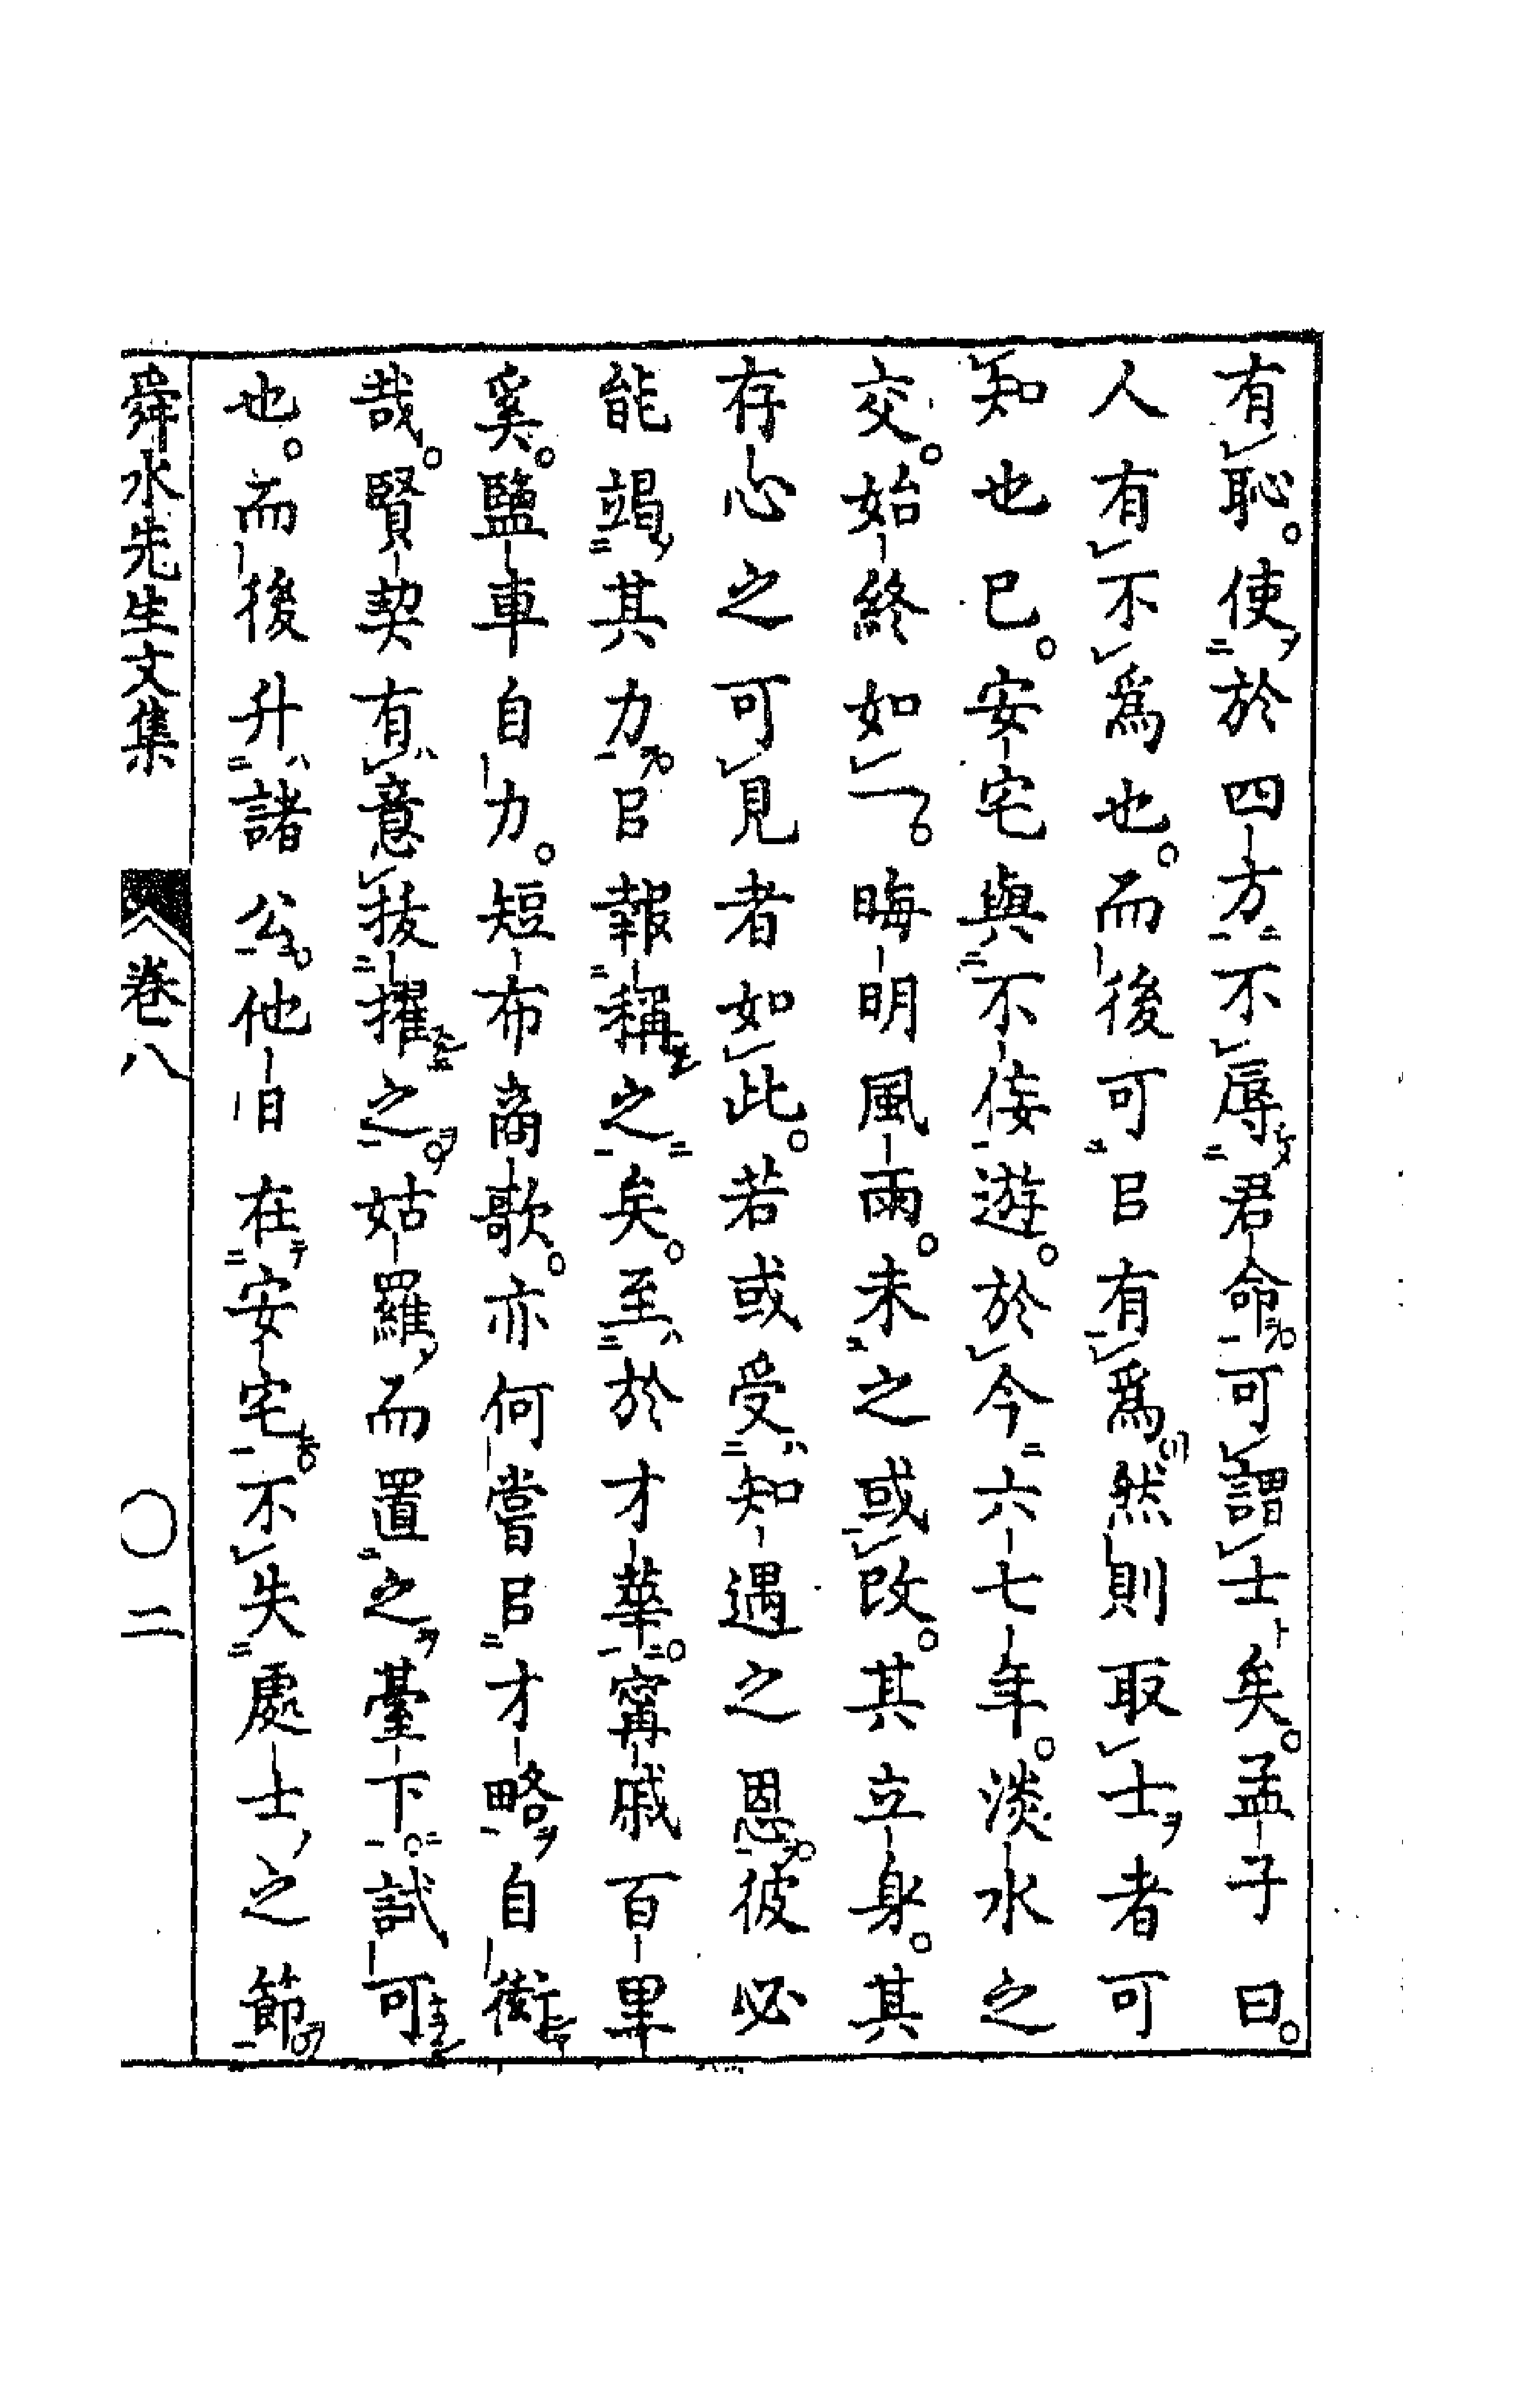 有恥。使於四方不辱君命。可謂士矣。孟子曰。
人有不爲也。而後可㠯有爲然則取士者可
知也已。安宅與不佞遊。於今六七年。淡水之
交。始終如一。晦明風雨。未之或改。其立身。其
存心之可見者如此。若或受知遇之恩。彼必
能竭其力。㠯報稱之矣。至於才華。甯戚百里
奚。鹽車自力。短布商歌。亦何嘗㠯才略自衒
哉。賢契有意拔擢之。姑羅而置之臺下。試可
也。而後升諸公。他日在安宅。不失處士之節。
舜水先生文集　卷八　〇二